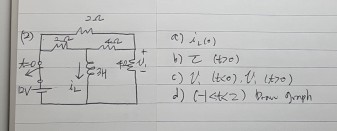 2Ω
(2)
2Ω 4Ω
+
t=0 iL 2H 4Ω V1
-
12V
a) iL(0)
b) τ (t>0)
c) V1 (t<0), V1 (t>0)
d) (-1<t<2) Draw graph